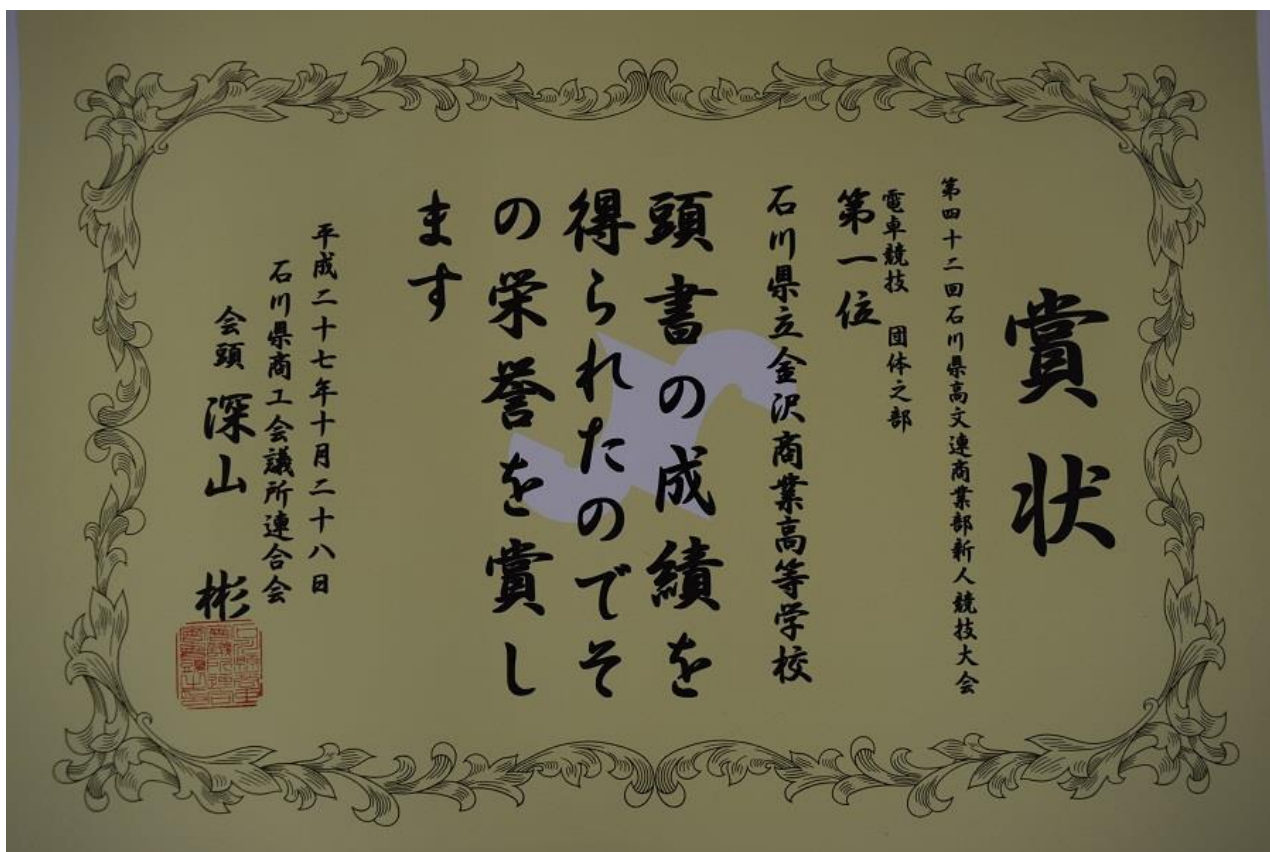 賞状
第四十二回石川県高文連商業部新人競技大会
電卓競技 団体之部
第一位
石川県立金沢商業高等学校
頭書の成績を
得られたのでそ
の栄誉を賞し
ます
平成二十七年十月二十八日
石川県商工会議所連合会
会頭 深山 彬